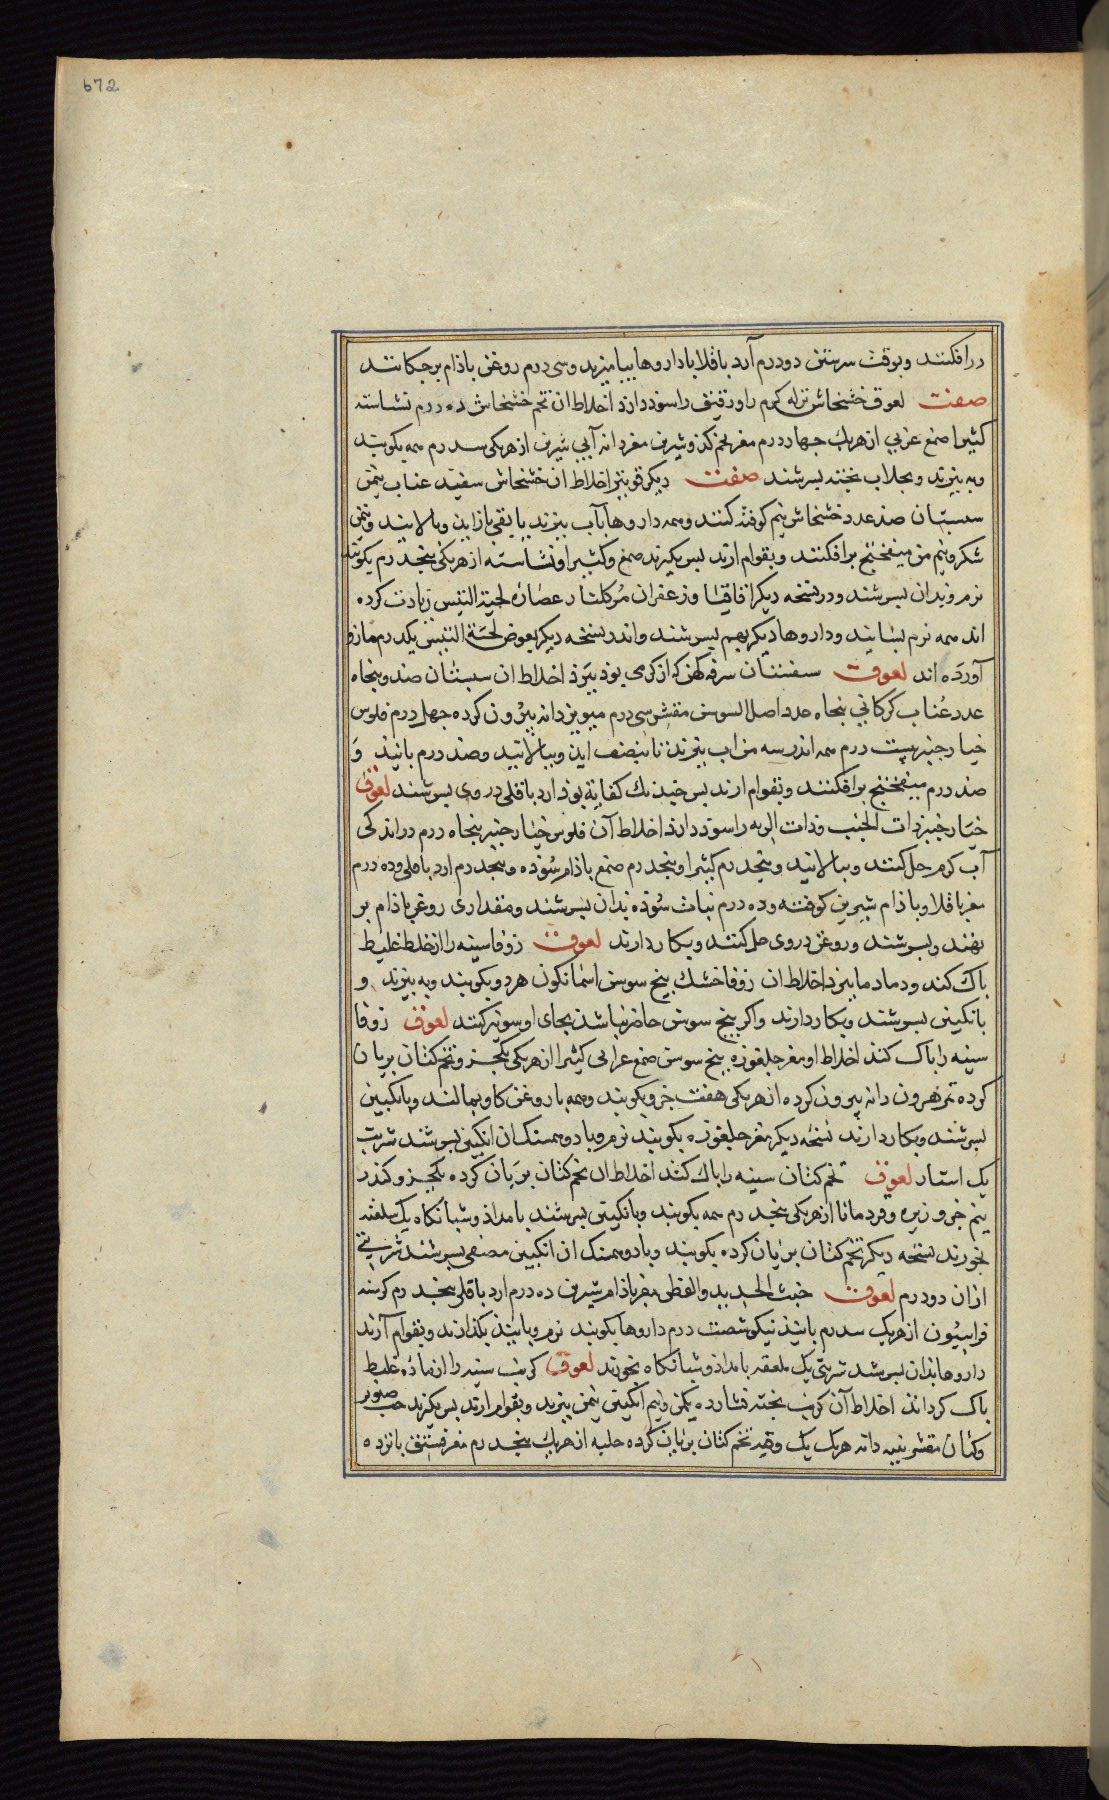 672
درافکنند وبوقت سرشتن دودرم آرد باقلا باداروها بیامیزند وسی درم روغن باذام برچکانند
صفت لعوق خشخاش نزله کرم راورقیق راسوددارد اخلاط ان تخم خشخاش ده درم نشاسته
کثیرا صمغ عربی ازهریک جهاردرم مغزتخم کدو شیرین مغزدانه آبی شیرین ازهریکی سدرم همه بکوبند
وبه بیزند وبجلاب بخته بسرشند صفت دیکر قوی‌تر اخلاط ان خشخاش سفید عناب نیم‌من
سبستان صذعدد خشخاش نیم کوفته کنند وهمه داروها بآب ببزند تا نیمی بازاین وبالایند ونیم‌من
شکر ونیم من میفختج برافکنند وبقوام ارند بس بکیرند صمغ وکثیرا ونشاسته ازهریکی بنجدرم بکوبند
نرم وبدان بسرشند ودرنسخه دیکر اقاقیا وزعفران هرکلنار عصاره لحیةالتیس زیادت کرده
اند همه نرم بسایند وداروها دیکر بهم بسرشند واندر نسخه دیکر بعوض لحیةالتیس یکدرم مازو
آورده اند لعوق سبستان سرفه کهن که ازکرمی بود ببرد اخلاط ان سبستان صدوبنجاه
عدد عناب کرکانی بنجاه عدد اصل السوس مقشر سی درم میویزدانه بیرون کرده جهل درم فلوس
خیارجنبر بیست درم همه اندرسه من اب ببزند تا بنصف اید وببالایند وصد درم بانید و
صددرم میفختج برافکنند وبقوام ارند بس جندنک کفایة بود ارد باقلی دروی بسرشند لعوق
خیارجنبر ذات الجنب وذات الریه راسوددارد اخلاط آن فلوس خیارجنبر بنجاه درم دراندکی
آب کرم حل کنند وببالایند وبنجدرم کثیرا وبنجدرم صمغ باذام سوده وبنجدرم ارد باقلی وده درم
مغز باقلا وباذام شیرین کوفته وده درم نبات سوده بدان بسرشند ومقداری روغن باذام بر
نهند وبسرشند وروغن دروی حل کنند وبکاردارند لعوق زوفا سینه را ازخلط غلیظ
باک کند ودمادم ما ببرد اخلاط ان زوفا خشک بیخ سوسن اسمانکون هردو بکوبند وبه بیزند و
بانکبین بسرشند وبکاردارند واکر بیخ سوسن حاضرنباشد بجای او سوسیر کنند لعوق زوفا
سینه را باک کند اخلاط او مغزجلغوزه بیخ سوسن صمغ عرابی کثیرا ازهریکی یکجزو تخم کتان بریان
کرده تمرهیرون دانه بیرون کرده ازهریکی هفت جزو بکوبند وهمه باروغن کاو بمالند وبانکبین
بسرشند وبکاردارند نسخه دیکر مغز جلغوزه بکوبند نرم وبا دوهمسنک ان انکبین بسرشند شربت
یک استار لعوق تخم کتان سینه را باک کند اخلاط ان تخم کتان بریان کرده یکجزو کندر
نیم جزو زیره وقردمانا ازهریکی بنجدرم همه بکوبند وبانکبین بسرشند بامداد وشبانکاه یک ملعقه
بخورند نسخه دیکر تخم کتان بریان کرده بکوبند وبا دوهمسنک ان انکبین مصفی بسرشند شربتی
ازان دودرم لعوق خبث الحدید والقطی مغزباذام شیرین ده درم ارد باقلی بنجدرم کرسنه
فراسیون ازهریک سدرم بانید نیکو شصت درم داروها بکوبند نرم وبانید بکدازند وبقوام آرند
داروها بدان بسرشند شربتی یک ملعقه بامداد وشبانکاه بخورند لعوق کرنب سینه را ازماده غلیظ
باک کرداند اخلاط آن کرنب بخته فشارده یکمن ونیم انکبین نیمن ببزند وبقوام ارند بس بکیرند حب صنوبر
وکتان مقشر بنبه دانه هریک یک وقیه تخم کتان بریان کرده حلبه ازهریک بنجدرم مغزفستق بانزده